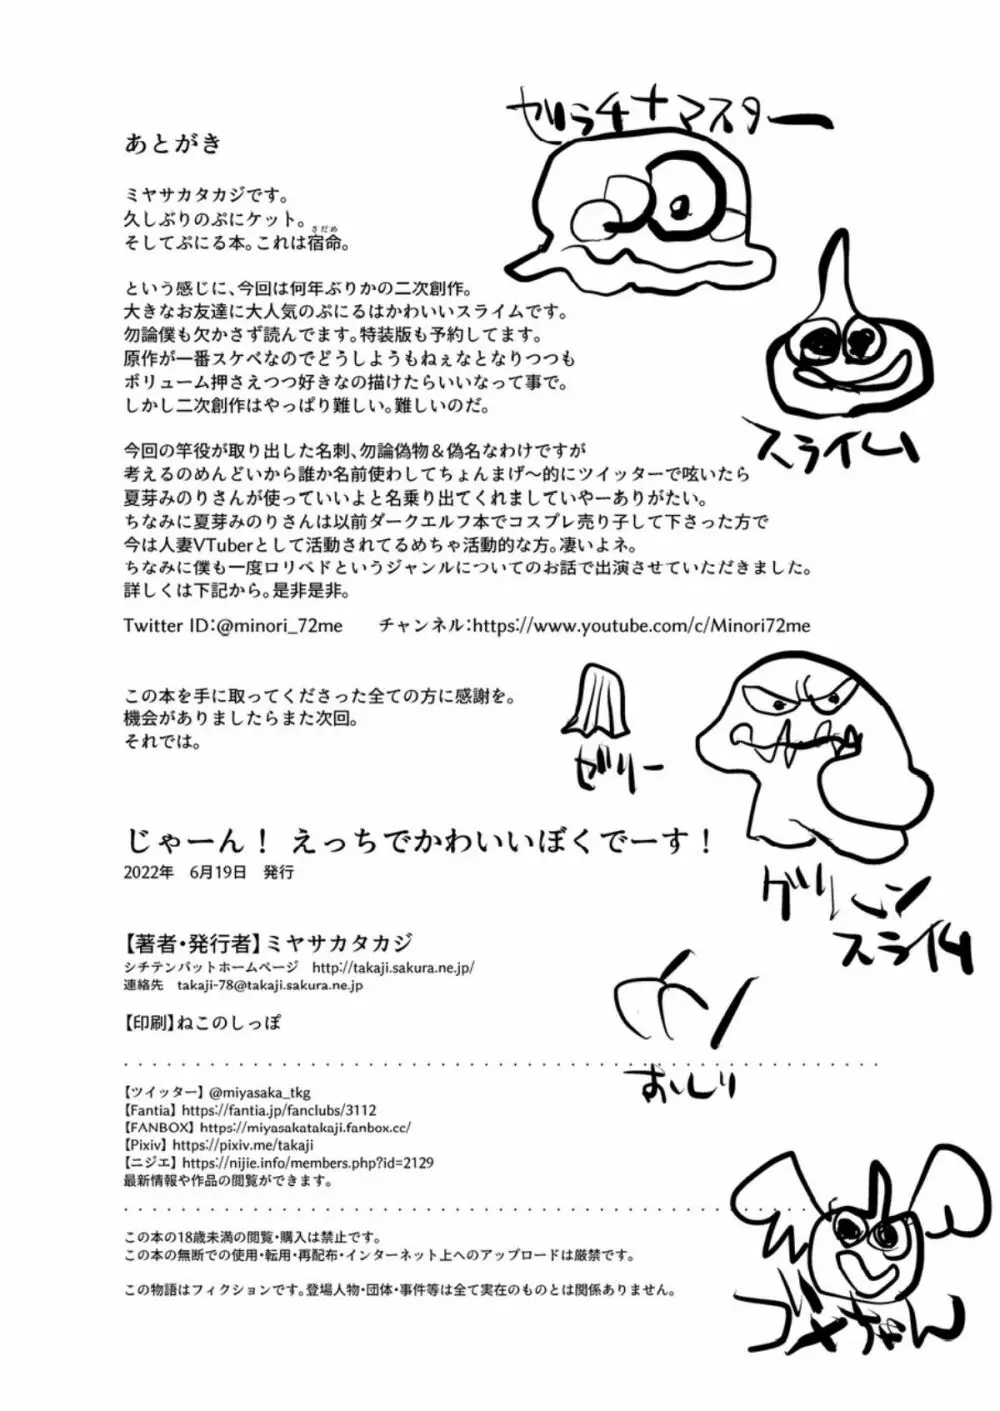 ゼラチナマスター
あとがき
ミヤサカタカジです。
久しぶりのぷにケット。
さだめ
そしてぷにる本。これは宿命。
という感じに、今回は何年ぶりかの二次創作。
大きなお友達に大人気のぷにるはかわいいスライムです。
勿論僕も欠かさず読んでます。特装版も予約してます。
原作が一番スケベなのでどうしようもねぇなとなりつつも
ボリューム押さえつつ好きなの描けたらいいなって事で。
しかし二次創作はやっぱり難しい。難しいのだ。
スライム
今回の竿役が取り出した名刺、勿論偽物＆偽名なわけですが
考えるのめんどいから誰か名前使わしてちょんまげ～的にツイッターで呟いたら
夏芽みのりさんが使っていいよと名乗り出てくれましていやーありがたい。
ちなみに夏芽みのりさんは以前ダークエルフ本でコスプレ売り子して下さった方で
今は人妻VTuberとして活動されてるめちゃ活動的な方。凄いよネ。
ちなみに僕も一度ロリペドというジャンルについてのお話で出演させていただきました。
詳しくは下記から。是非是非。
Twitter ID:@minori_72me　チャンネル:https://www.youtube.com/c/Minori72me
この本を手に取ってくださった全ての方に感謝を。
機会がありましたらまた次回。
それでは。
ゼリー
じゃーん！ えっちでかわいいぼくでーす！
2022年　6月19日　発行
グリーン
スライム
【著者・発行者】ミヤサカタカジ
シチテンバットホームページ　http://takaji.sakura.ne.jp/
連絡先　takaji-78@takaji.sakura.ne.jp
【印刷】ねこのしっぽ
おしり
【ツイッター】@miyasaka_tkg
【Fantia】https://fantia.jp/fanclubs/3112
【FANBOX】https://miyasakatakaji.fanbox.cc/
【Pixiv】https://pixiv.me/takaji
【ニジエ】https://nijie.info/members.php?id=2129
最新情報や作品の閲覧ができます。
この本の18歳未満の閲覧・購入は禁止です。
この本の無断での使用・転用・再配布・インターネット上へのアップロードは厳禁です。
この物語はフィクションです。登場人物・団体・事件等は全て実在のものとは関係ありません。
ゴメちゃん